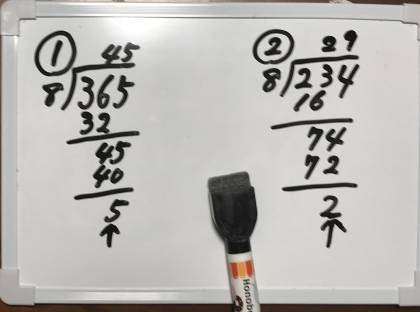 ① 45
8)365
32
45
40
5
↑
② 29
8)234
16
74
72
2
↑
Honobo